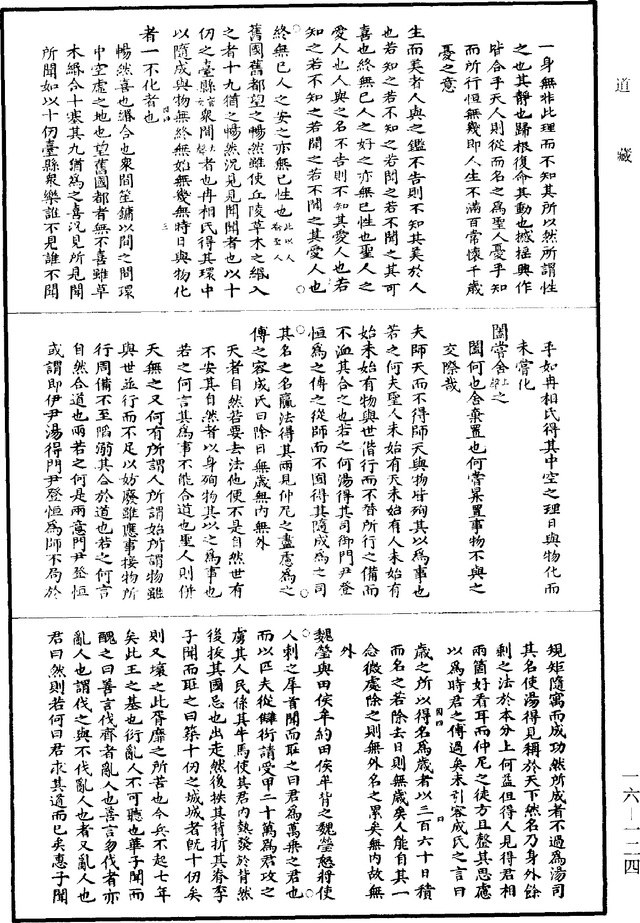 道藏
一身無非此理而不知其所以然所謂性
之也其靜也歸根復命其動也撼搖興作
皆合乎天人則從而名之為聖人憂乎知
而所行恒無幾即人生不滿百常懷千歲
憂之意
生而美者人與之鑑不告則不知其美於人
也若知之若不知之若聞之若不聞之其可
喜也終無已人之好之亦無已性也聖人之
愛人也人與之名不告則不知其愛人也若
知之若不知之若聞之若不聞之其愛人也
終無已人之安之亦無已性也
舊國舊都望之暢然雖使丘陵草木之緡入
之者十九猶之暢然況見見聞聞者也以十
仞之臺縣衆間者也冉相氏得其環中
以隨成與物無終無始無幾無時日與物化
者一不化者也
暢然喜也緡合也衆間笙鏞以間之間環
中空虛之地也望舊國都者無不喜雖草
木緡合十塞其九猶為之喜況見所見聞
所聞如以十仞臺縣衆樂誰不見誰不聞
乎如冉相氏得其中空之理日與物化而
未嘗化
闔嘗舍之
闔何也舍棄置也何嘗棄置事物不與之
交際哉
夫師天而不得師天與物皆殉其以為事也
若之何夫聖人未始有天未始有人未始有
始未始有物與世偕行而不替所行之備而
不洫其合之也若之何湯得其司御門尹登
恒為之傅之從師而不囿得其隨成為之司
其名之名嬴法得其兩見仲尼之盡慮為之
傅之容成氏曰除日無歲無內無外
天者自然若要去法他便不是自然世有
不安其自然者以身殉物其以之為事也
若之何言其為事不能合道也聖人則併
天無之又何有所謂人所謂始所謂物雖
與世並行而不足以妨廢雖應事接物所
行周備不至陷溺其合於道也若之何言
自然合道也兩若之何是兩意門尹登恒
或謂即伊尹湯得門尹登恒為師不局於
規矩隨寓而成功然所成者不過為湯司
其名使湯得見稱於天下然名乃身外餘
剩之法於本分上何益但得人見得君相
兩箇好看耳而仲尼之徒方且盡其思慮
以為時君之傅過矣末引容成氏之言曰
歲之所以得名為歲者以三百六十日積
而名之若除去日則無歲矣人能自其一
念微處除之則無外名之累矣無內故無
外
魏瑩與田侯牟約田侯牟背之魏瑩怒將使
人刺之犀首聞而恥之曰君為萬乘之君也
而以匹夫從讎衍請受甲二十萬為君攻之
虜其人民係其牛馬使其君內熱發於背然
後拔其國忌也出走然後抶其背折其脊季
子聞而恥之曰築十仞之城城者既十仞矣
則又壞之此胥靡之所苦也今兵不起七年
矣此王之基也衍亂人不可聽也華子聞而
醜之曰善言伐齊者亂人也善言勿伐者亦
亂人也謂伐之與不伐亂人也者又亂人也
君曰然則若何曰君求其道而已矣惠子聞
一六—一二四